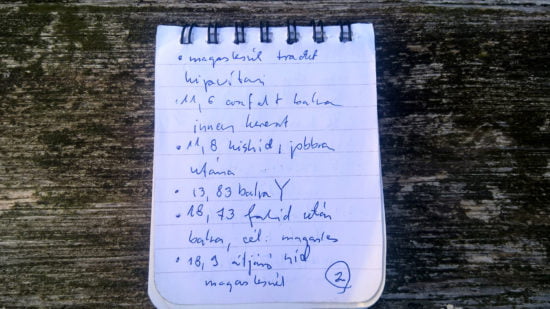 • magaslesnél
• 11,6 aszfalt balra
innen kereszt
• 11,8 kishíd, jobbra
utána
• 13,83 balra Y
• 18,73 fahíd után
balra, cél: magasles
• 18,9 átjáró híd
magaslesnél
2